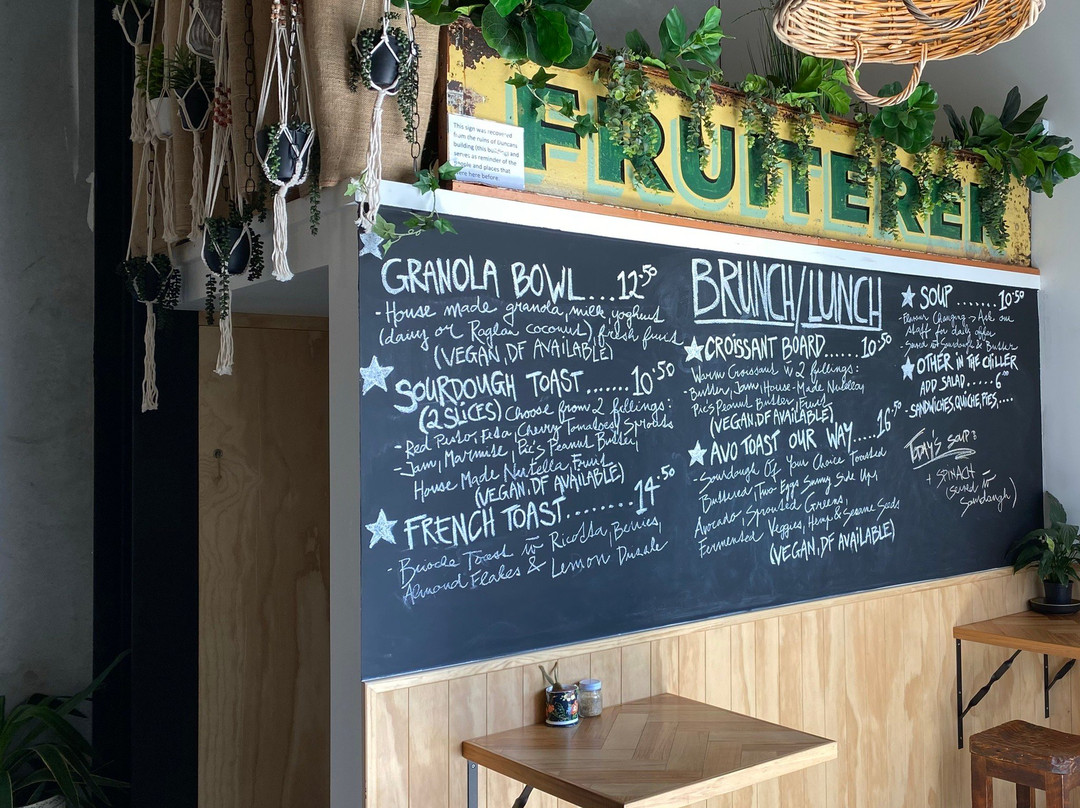 FRUITERER
This sign was recovered
from the ruins of Duncans
building (this building) and
serves as reminder of the
people and places that
were here before.
GRANOLA BOWL....12.50
- House made granola, milk yoghurt
(dairy or Raglan coconut), fresh fruit
(VEGAN, DF AVAILABLE)
SOURDOUGH TOAST.......10.50
(2 SLICES) Choose from 2 fillings:
- Red Pesto, Feta, Cherry Tomatoes, Sprouts
- Jam, Marmite, Pic's Peanut Butter,
House Made Nutella, Fruit
(VEGAN, DF AVAILABLE)
FRENCH TOAST........14.50
- Brioche Toast w Ricotta, Berries,
Almond Flakes & Lemon Drizzle
BRUNCH/LUNCH
CROISSANT BOARD......10.50
Warm Croissant w 2 fillings:
- Butter, Jam, House-Made Nutella,
Pic's Peanut Butter, Fruit
(VEGAN, DF AVAILABLE)
AVO TOAST OUR WAY.....16.50
- Sourdough Of Your Choice Toasted
Buttered, Two Eggs Sunny Side Up,
Avocado, Sprouted Greens,
Fermented Veggies, Hemp & Sesame Seeds
(VEGAN, DF AVAILABLE)
SOUP.......10.50
Flavour Changing > Ask our
staff for daily offer
Served w Sourdough & Butter
OTHER IN THE CHILLER
ADD SALAD.....6.00
- SANDWICHES, QUICHE, PIES,....
Today's soup:
+ SPINACH
(served w
sourdough)